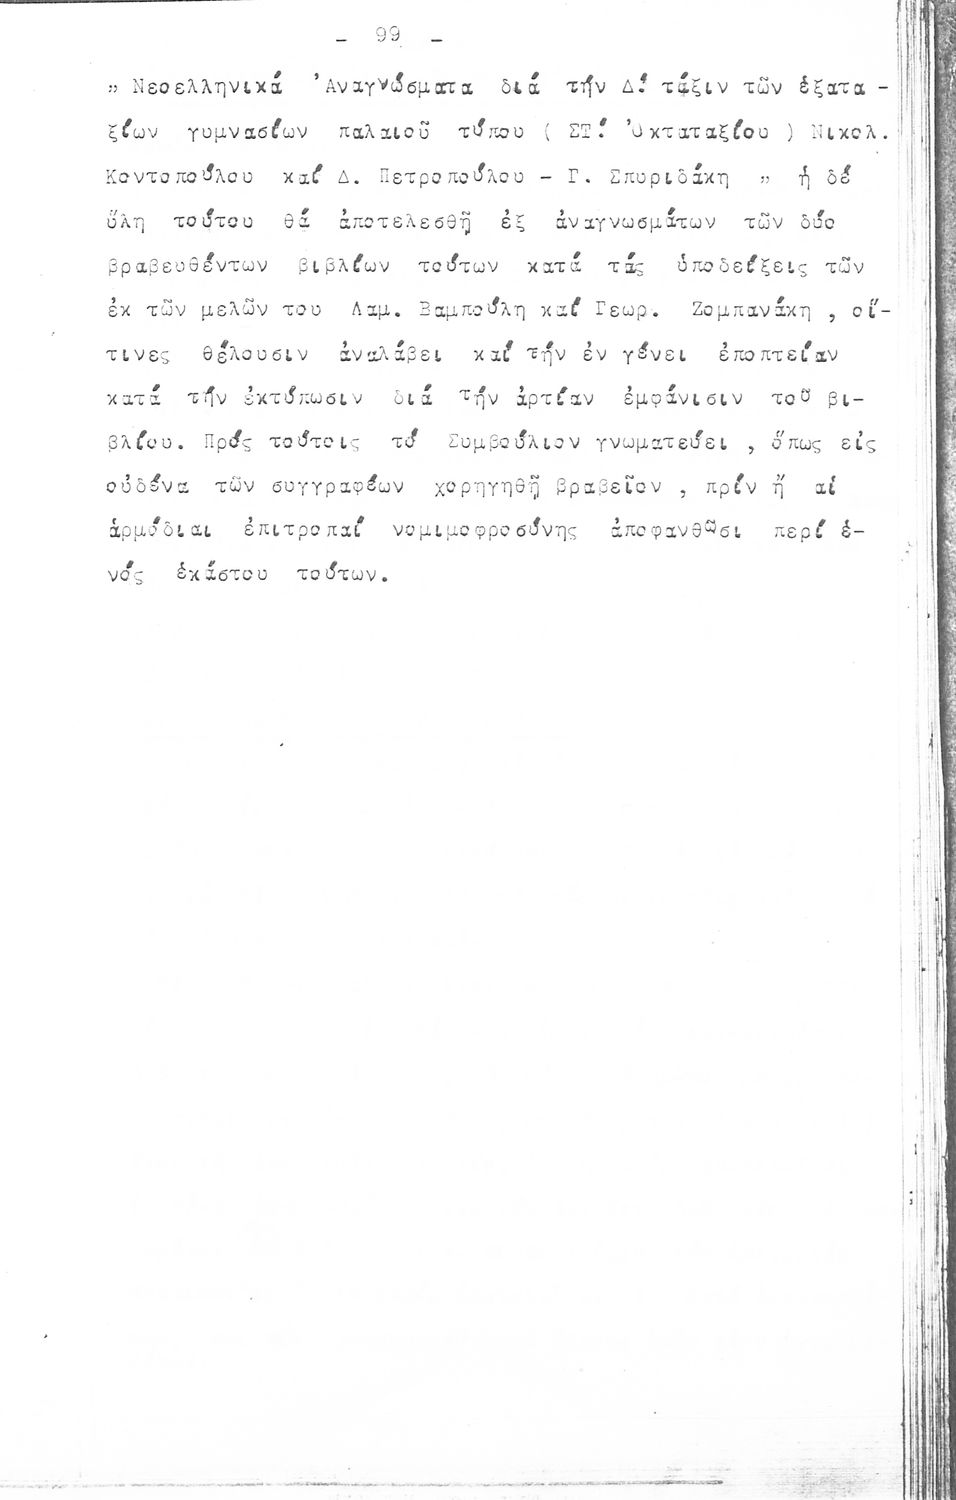 - 99 -
" Νεοελληνικά 'Αναγνώσματα διά τήν Δ! τάξιν τῶν ἑξατα -
ξίων γυμνασίων παλαιοῦ τύπου ( ΣΤ! 'Οκταταξίου ) Νικολ.
Κοντοπούλου καί Δ. Πετροπούλου - Γ. Σπυριδάκη " ἡ δέ
ὕλη τούτου θά ἀποτελεσθῇ ἐξ ἀναγνωσμάτων τῶν δύο
βραβευθέντων βιβλίων τούτων κατά τάς ὑποδείξεις τῶν
ἐκ τῶν μελῶν του Λαμ. Βαμπούλη καί Γεωρ. Ζομπανάκη , οἵ-
τινες θέλουσιν ἀναλάβει καί τήν ἐν γένει ἐποπτείαν
κατά τήν ἐκτύπωσιν διά τήν ἀρτίαν ἐμφάνισιν τοῦ βι-
βλίου. Πρός τούτοις τό Συμβούλιον γνωματεύει , ὅπως εἰς
οὐδένα τῶν συγγραφέων χορηγηθῇ βραβεῖον , πρίν ἤ αἱ
ἁρμόδιαι ἐπιτροπαί νομιμοφροσύνης ἀποφανθῶσι περί ἑ-
νός ἑκάστου τούτων.